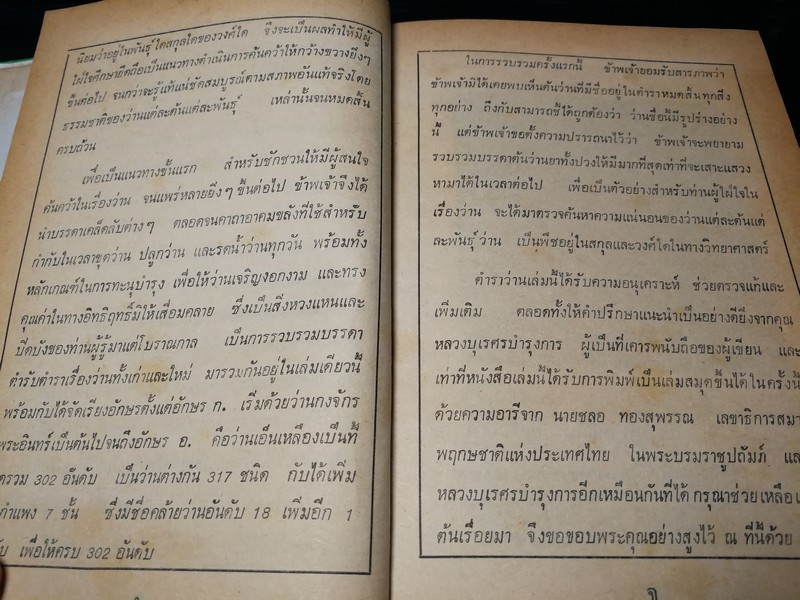 นิยมว่าอยู่ในพันธุ์ใดสกุลใดของวงศ์ใด จึงจะเป็นผลทำให้มีผู้
ใฝ่ใจศึกษายึดถือเป็นแนวทางดำเนินการค้นคว้าให้กว้างขวางยิ่งๆ
ขึ้นต่อไป จนกว่าจะรู้แท้แน่ชัดสมบูรณ์ตามสภาพอันแท้จริงโดย
ธรรมชาติของว่านแต่ละต้นแต่ละพันธุ์ เหล่านั้นจนหมดสิ้น
ครบถ้วน
เพื่อเป็นแนวทางขั้นแรก สำหรับชักชวนให้มีผู้สนใจ
ค้นคว้าในเรื่องว่าน จนแพร่หลายยิ่งๆ ขึ้นต่อไป ข้าพเจ้าจึงได้
นำบรรดาเคล็ดลับต่างๆ ตลอดจนคาถาอาคมขลังที่ใช้สำหรับ
กำกับในเวลาขุดว่าน ปลูกว่าน และรดน้ำว่านทุกวัน พร้อมทั้ง
หลักเกณฑ์ในการทะนุบำรุง เพื่อให้ว่านเจริญงอกงาม และทรง
คุณค่าในทางอิทธิฤทธิ์มิให้เสื่อมคลาย ซึ่งเป็นสิ่งหวงแหนและ
ปิดบังของท่านผู้รู้มาแต่โบราณกาล เป็นการรวบรวมบรรดา
ตำรับตำราเรื่องว่านทั้งเก่าและใหม่ มารวมกันอยู่ในเล่มเดียวนี้
พร้อมกับได้จัดเรียงอักษรตั้งแต่อักษร ก. เริ่มด้วยว่านกงจักร
พระอินทร์เป็นต้นไปจนถึงอักษร อ. คือว่านเอ็นเหลืองเป็นที่
ครวม 302 อันดับ เป็นว่านต่างกัน 317 ชนิด กับได้เพิ่ม
กำแพง 7 ชั้น ซึ่งมีชื่อคล้ายว่านอันดับ 18 เพิ่มอีก 1
เพื่อให้ครบ 302 อันดับ
ในการรวบรวมครั้งแรกนี้ ข้าพเจ้ายอมรับสารภาพว่า
ข้าพเจ้ามิได้เคยพบเห็นต้นว่านที่มีชื่ออยู่ในตำราหมดสิ้นทุกสิ่ง
ทุกอย่าง ถึงกับสามารถชี้ได้ถูกต้องว่า ว่านชื่อนี้มีรูปร่างอย่าง
นี้ แต่ข้าพเจ้าขอตั้งความปรารถนาไว้ว่า ข้าพเจ้าจะพยายาม
รวบรวมบรรดาต้นว่านยาทั้งปวงให้มีมากที่สุดเท่าที่จะเสาะแสวง
หามาได้ในเวลาต่อไป เพื่อเป็นตัวอย่างสำหรับท่านผู้ใฝ่ใจใน
เรื่องว่าน จะได้มาตรวจค้นหาความแน่นอนของว่านแต่ละต้นแต่
ละพันธุ์ว่าน เป็นพืชอยู่ในสกุลและวงศ์ใดในทางวิทยาศาสตร์
ตำราว่านเล่มนี้ได้รับความอนุเคราะห์ ช่วยตรวจแก้และ
เพิ่มเติม ตลอดทั้งให้คำปรึกษาแนะนำเป็นอย่างดียิ่งจากคุณ
หลวงบุเรศรบำรุงการ ผู้เป็นที่เคารพนับถือของผู้เขียน และ
เท่าที่หนังสือเล่มนี้ได้รับการพิมพ์เป็นเล่มสมุดขึ้นได้ในครั้งนี้
ด้วยความอารีจาก นายชลอ ทองสุพรรณ เลขาธิการสมา
พฤกษชาติแห่งประเทศไทย ในพระบรมราชูปถัมภ์ แล
หลวงบุเรศรบำรุงการอีกเหมือนกันที่ได้กรุณาช่วยเหลือเ
ต้นเรื่อยมา จึงขอขอบพระคุณอย่างสูงไว้ ณ ที่นี้ด้วย